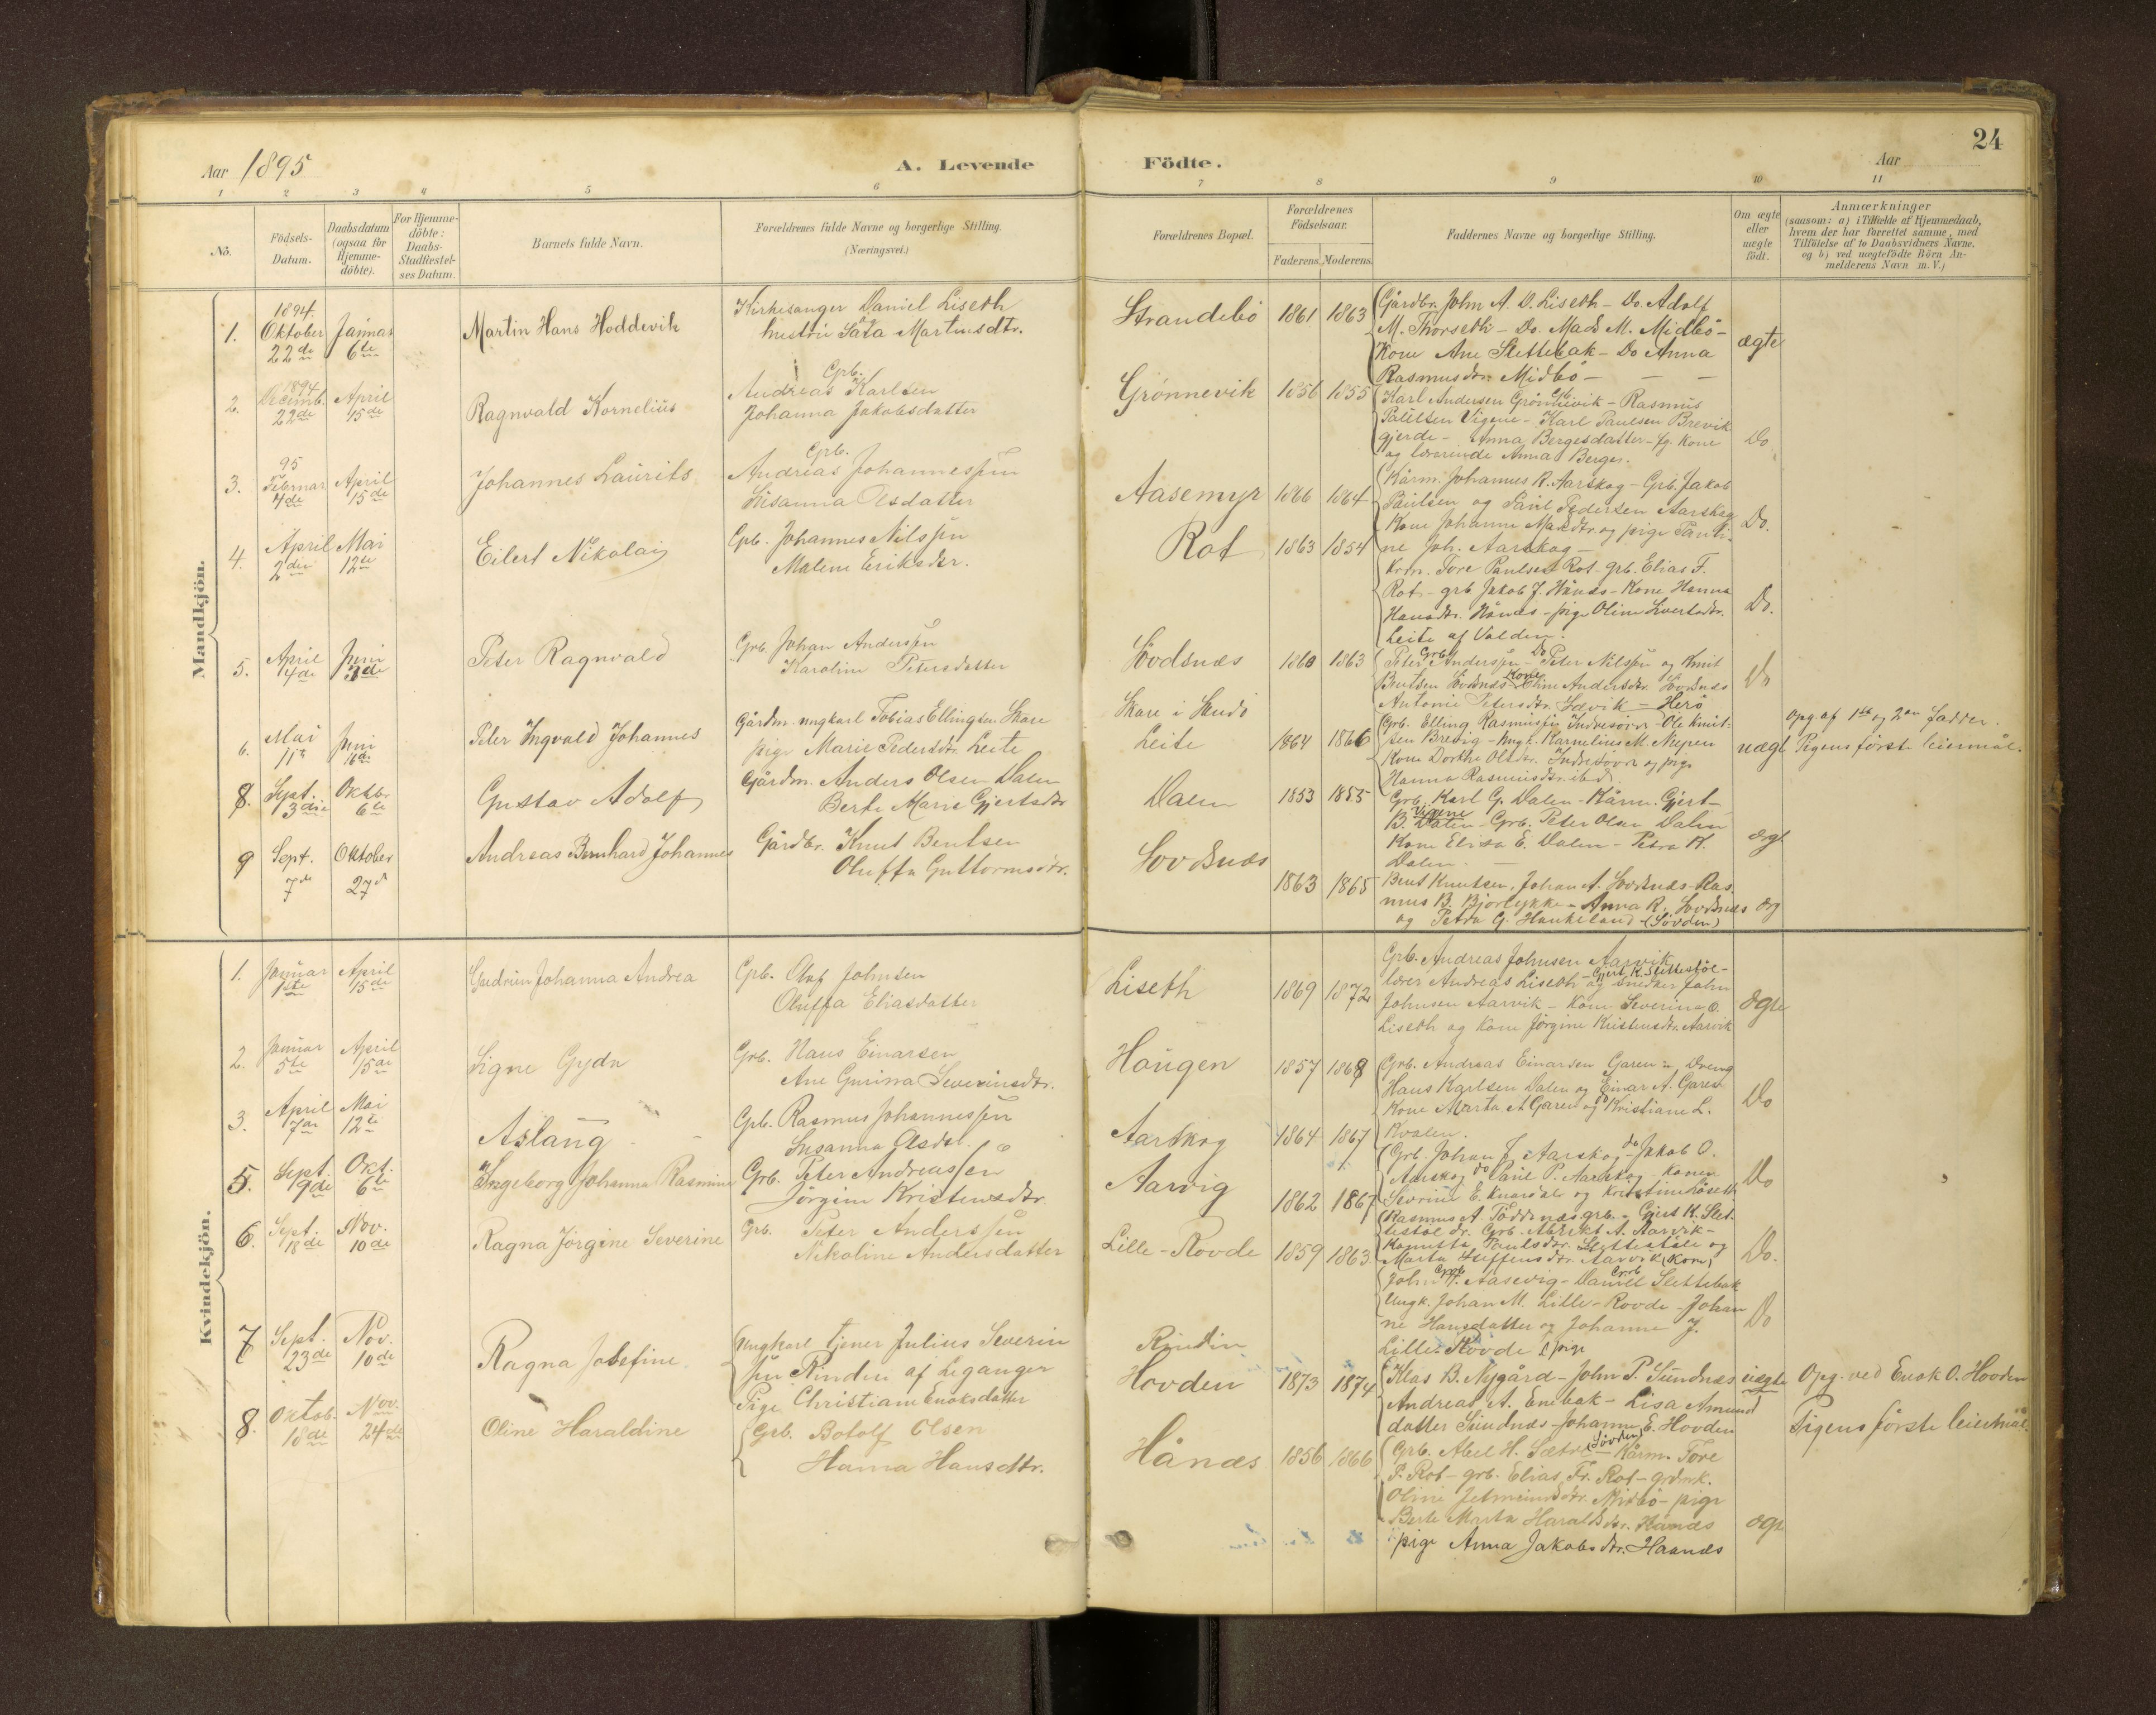 24
Aar 1895
A. Levende Födte.
Aar
1 2 3 4 5 6 7 8 9 10 11
No.
Födsels-Datum.
Daabsdatum (ogsaa for Hjemme-döbte).
For Hjemme-döbte: Daabs-Stadfæstel-ses Datum.
Barnets fulde Navn.
Forældrenes fulde Navne og borgerlige Stilling. (Næringsvei.)
Forældrenes Bopæl.
Forældrenes Födselsaar.
Faderens. Moderens.
Faddernes Navne og borgerlige Stilling.
Om ægte eller uægte födt.
Anmærkninger
(saasom: a) i Tilfælde af Hjemmedaab,
hvem der har forrettet samme, med
Tilföielse af to Daabsvidners Navne,
og b) ved uægtefödte Börn An-
melderens Navn m. V.)
Mandkjön.
1. 1894. Oktober 22de
Januar 6te
Martin Hans Hoddevik
Kirkesanger Daniel Liseth
hustru Sara Martinsdtr.
Strandebö 1861 1863
Gårdbr. John A. D. Liseth - Do. Adolf
M. Thorseth - Do. Mads M. Midbö -
Kone Ane Slettebak - Do Anna
Rasmusdtr. Midbö -
ægte
2. 1894 Decemb. 22de
April 15de
Ragnvald Kornelius
Grb. Andreas Karlsen
Johanna Jakobsdatter
Grönnevik 1856 1855
Karl Andersen Grönnevik - Rasmus
Paulsen Vigene - Karl Paulsen Brevik
gjerde - Anna Bergesdatter - g. Kone
og lærerinde Anna Berges.
Do
3. 95 Februar 4de
April 15de
Johannes Laurits
Grb. Andreas Johannessen
Susanna Olsdatter
Aasemyr 1866 1864
Kårm. Johannes R. Aarskog - Grb. Jakob
Paulsen og Paul Pedersen Aarskog
Kone Johanne Marsdtr. og pige Pauli-
ne Joh. Aarskog -
Do.
4. April 2den
Mai 12te
Eilert Nikolai
Grb. Johannes Nilssen
Malene Eriksdtr.
Rot 1863 1854
Krm. Tore Paulsen Rot - grb. Elias F.
Rot - grb Jakob J. Hånæs - Kone Hanna
Hansdtr. Hånæs - pige Oline Sivertsdtr.
Leite af Volden.
Do.
5. April 14de
Juni 3de
Peter Ragnvald
Grb. Johan Anderssen
Karoline Petersdatter
Sövdsnæs 1860 1863
Peter Grb. Anderssen - Do Peter Nilssen og Knut
Bentsen Sövdsnæs Kone Oline Andersdtr. Sövdsnæs
Antonie Petersdtr. Sævik - Herö
Do
6. Mai 11te
Juni 16de
Peter Ingvald Johannes
Gårdm. ungkarl Tobias Ellingsen Skare
pige Marie Pedersdtr. Leite
Skare i Skudö
Leite 1864 1866
Grb. Elling Rasmussen Indresövde - Ole Knut-
sen Brevig - Ungk. Karnelius M. Nupen
Kone Dorthe Olsdtr. Indresövde og pige
Hanna Rasmusdtr. ibid.
uægt
Opg. af 1ste og 2den fadder.
Pigens förste leiermål.
8. Sept. 3die
Oktbr. 6te
Gustav Adolf
Gårdm. Anders Olsen Dalen
Berte Marie Gjertsdtr
Dalen 1853 1855
Grb. Karl G. Dalen - Kårm. Gjert
B. Vigene - Grb. Peter Olsen Dalen
Kone Elisa E. Dalen - Petra K.
Dalen.
ægt
9 Sept. 7de
Oktober 27de
Andreas Bernhard Johannes
Gårdbr. Knut Bentsen
Oluffa Guttormsdtr.
Sovdsnæs
1863 1865
Bent Knutsen, Johan A. Sovdsnæs - Ras-
mus B. Bjorlykke - Anna R. Sovdsnæs
og Petra G. Haukeland (Sövden)
æg
Kvindekjön.
1. Januar 1ste
April 15de
Gudrun Johanna Andrea
Grb. Oluf Johnsen
Oluffa Eliasdatter
Liseth 1869 1872
Grb. Andreas Johnsen Aarvik
lærer Andreas Liseth - Gjert K. Slettestöl -
og snedker John
Johnsen Aarvik - Kone Severine O.
Liseth og Kone Jörgine Kristensdtr. Aarvik
ægte
2. Januar 5te
April 15de
Signe Gyda
Grb. Hans Einarsen
Ane Gurina Severinsdtr.
Haugen 1857 1868
Grb. Andreas Einarsen Garen - Dreng
Hans Karlsen Dalen og Einar A. Garen
Kone Marta A Garen og do Kristiane L.
Kvalen.
Do
3. April 7de
Mai 12te
Aslaug
Grb. Rasmus Johannessen
Susanna Olsdtr.
Aarskog 1864 1867
Grb. Johan J. Aarskog - do Jakob O.
Aarskog do Paul P. Aarskog - Konen
Severine E. Knardal og Kristine Löseth
Do
5. Sept. 9de
Okt. 6te
Ingeborg Johanna Rasmine
Grb. Peter Andreassen
Jörgine Kristensdtr.
Aarvig 1862 1867
Rasmus A. Töddenæs grb. - Gjert K. Slet-
testöl do. Grb. Abrikt A. Aarvik -
Kanutta Paulsdtr. Slettestöle og
Marta Steffensdtr. Aarvik (Kone)
Do.
6. Sept. 18de
Nov. 10de
Ragna Jörgine Severine
Grb. Peter Anderssen
Nikoline Andersdatter
Lille-Rovde 1859 1863
John Grb. P. Aasevig - Daniel Grb Slettebak
Ungk. Johan M. Lille-Rovde - Johan
ne Hansdatter og Johanne J.
Lille-Rovde pige
Do
7 Sept. 23de
Nov. 10de
Ragna Josefine.
Ungkarl tjener Julius Severin
sen Rinden af Leganger
Pige Christiane Enoksdatter
Rindin
Hovden 1873 1874
Klas B. Nygård - John P. Sundnæs
Andreas A. Enebak - Lisa Amund
datter Sundnæs - Johanne E. Hovden
uægte
Opg. ved Enok O. Hovden
Pigens förste leiermål
8. Oktob. 18de
Nov. 24de
Oline Haraldine
Grb. Botolf Olsen
Hanna Hansdtr.
Hånæs 1856 1866
Grb. Abel H. Sætre (Sövden) - Kårm. Tore
P. Rot - grb. Elias Fr. Rot - grdmk.
Oline Jetmundsdtr. Midbö - pige
Berte Marta Haraldsdtr. Hånæs
pige Anna Jakobsdtr. Haanæs
ægte